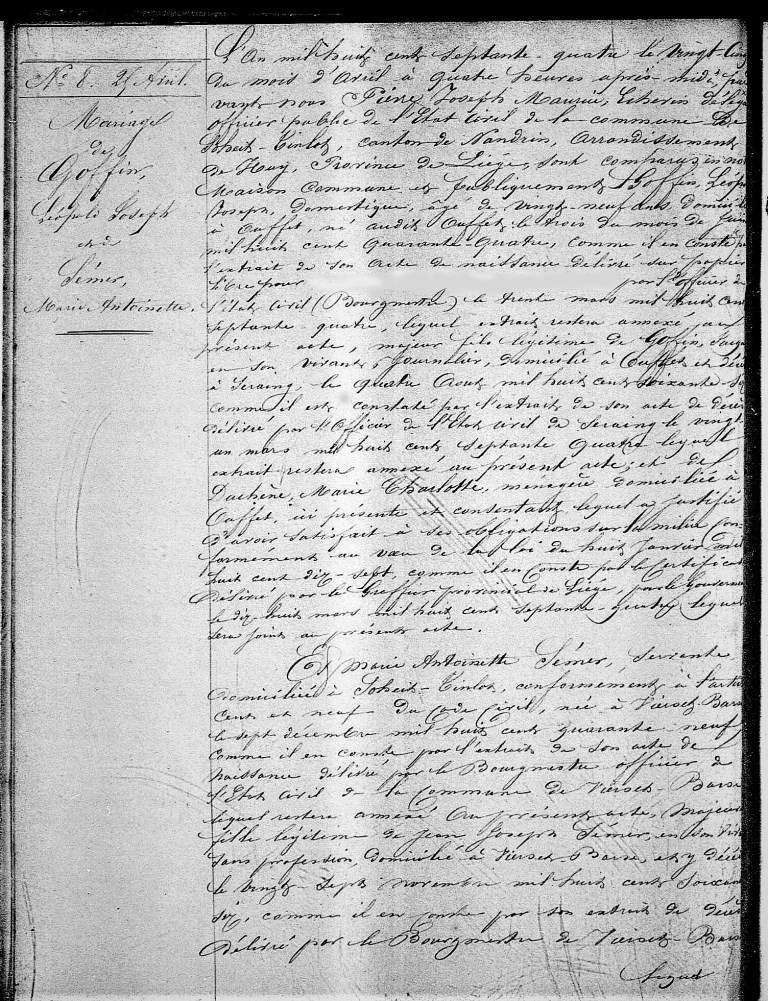 N° 8. 25 Avril.
Mariage
de
Goffin,
Léopold Joseph
et de
Sémer,
Marie Antoinette.
L'An mil huit cent septante-quatre le vingt-cinq
du mois d'Avril à quatre heures après-midi par
vant nous Pierre Joseph Echevin délég
officier public de l'Etat civil de la commune de
Soheit-Tinlot, canton de Nandrin, Arrondissement
de Huy, Province de Liège, sont comparus en not
Maison Commune et publiquement Goffin, Léop
Joseph, Domestique, âgé de vingt-neuf ans domici
à Ouffet, né audit Ouffet le trois du mois de juin
mil huit cent quarante-quatre, comme il en conste p
l'extrait de son acte de naissance délivré sur papier
libre pour par l'officier de
l'état civil (Bourgmestre) le trente mars mil huit cent
septante-quatre, lequel extrait restera annexé au
présent acte, majeur fils légitime de Goffin,
en son vivant journalier, domicilié à Ouffet et décé
à Seraing, le quatre Aout mil huit cent soixante-
comme il est constaté par l'extrait de son acte de décès
délivré par l'Officier de l'Etat civil de Seraing le vingt
un mars mil huit cent septante quatre lequel
extrait restera annexé au présent acte; et de
Duchène, Marie Charlotte, menagère domiciliée à
Ouffet, ici présente et consentant, lequel a justifié
d'avoir satisfait à ses obligations sur la milice con
formément au vœu de la loi du huit Janvier mil
huit cent dix-sept, comme il en conste par le Certificat
délivré par le Greffier provincial de Liège, par le Gouverneu
le dix-huit mars mil huit cent septante quatre lequel
sera joint au présent acte.
Et Marie Antoinette Sémer, Servante
domiciliée à Soheit-Tinlot, conformément à l'artic
cent et neuf du code civil, née à Vierset-Barse
le sept décembre mil huit cent quarante-neuf
comme il en conste par l'extrait de son acte de
naissance délivré par le Bourgmestre officier de
l'Etat civil de la Commune de Vierset-Barse
lequel restera annexé au présent acte, Majeure
fille légitime de Jean Joseph Sémer, en son viv
sans profession domicilié à Vierset-Barse, et y décé
le vingt-sept novembre mil huit cent soixante
six, comme il en conste par son extrait de décè
délivré par le Bourgmestre de Vierset-Barse
lequel